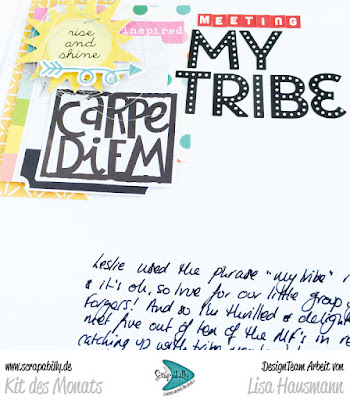 rise
and
shine
inspired
MEETING
MY
TRIBE
CARPE
DIEM
Leslie used the phrase "my tribe"
& it's oh, so true for our little group
Forgers! And so I'm thrilled & delight
meet five out of ten of the MF's in re
catching up with tribe
www.scrapabilly.de
Kit des Monats
Scrapabilly
DesignTeam Arbeit von
Lisa Hausmann